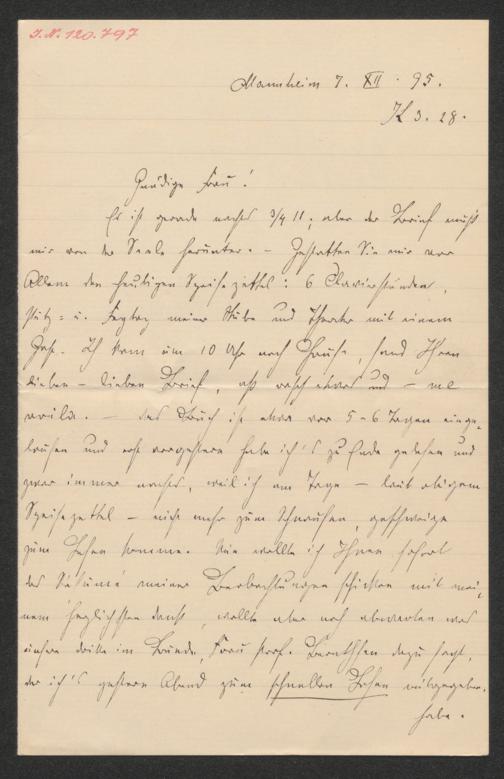 I.N. 120.797
Mannheim 7. XII. 95.
K 3. 28.
Gnädige Frau!
Es ist gerade nachts 3/4 11; aber der Brief muß
mir von der Seele herunter. – Gestatten Sie mir vor
Allem den heutigen Speisezettel: 6 Clavierstunden,
Putz- u. Fegtag meiner Stube und Theater mit einem
Gast. Ich kam um 10 Uhr nach Hause, fand Ihren
lieben – lieben Brief, aß rasch etwas und – me
voilà. – das Buch ist etwa vor 5–6 Tagen einge-
laufen und erst vorgestern habe ich's zu Ende gelesen und
zwar immer nachts, weil ich am Tage – laut obigem
Speisezettel – nicht mehr zum Schnaufen, geschweige
zum Lesen komme. Nun wollte ich Ihnen sofort
das Resumé meiner Beobachtungen schicken mit mei-
nem herzlichsten Dank, wollte aber noch abwarten was
unsere dritte im Bunde, Frau Prof. Bernthsen dazu sagt,
der ich's gestern Abend zum schnellen Lesen mitgegeben
habe.